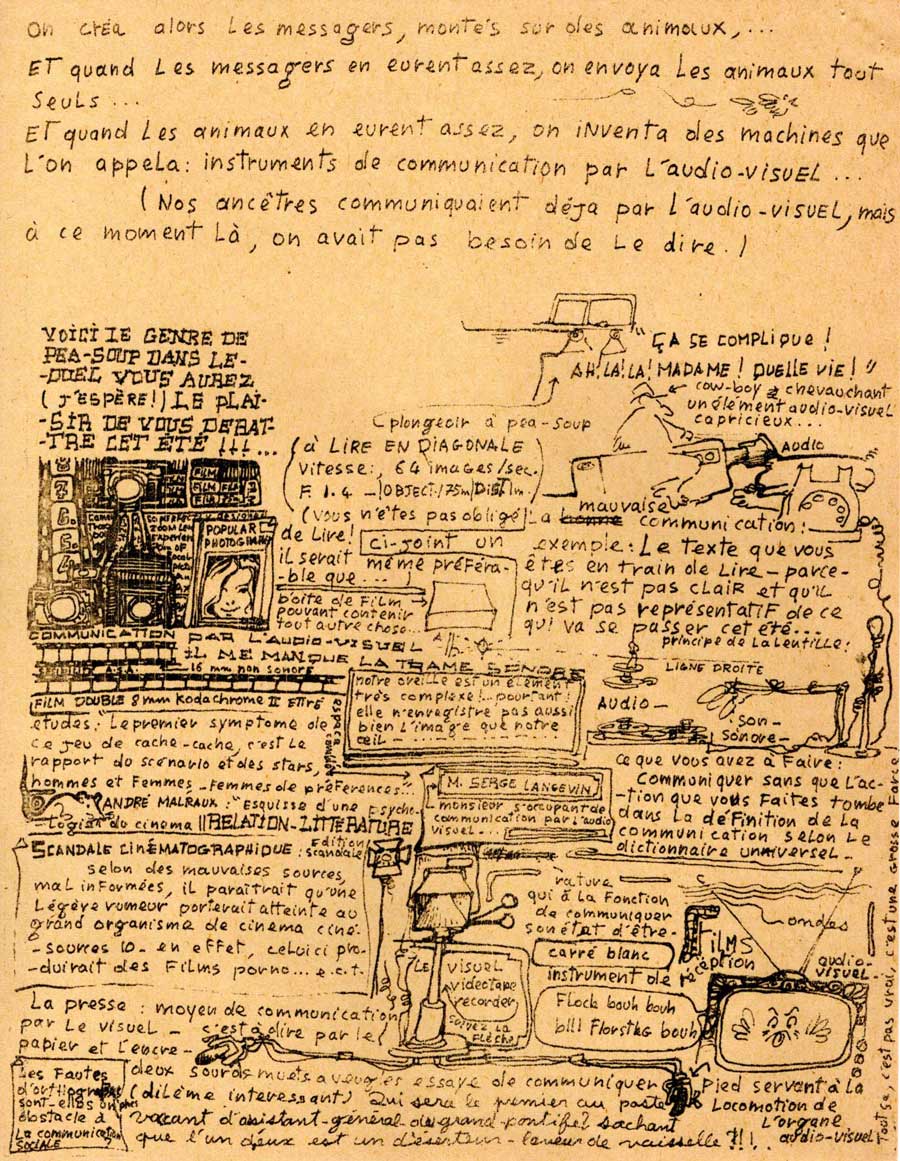 On créa alors Les messagers, montés sur des animaux,...
ET quand Les messagers en eurent assez, on envoya Les animaux tout
seuls...
ET quand Les animaux en eurent assez, on iNventa des machines que
L'on appela: instruments de communication par L'audio-visuel...
(Nos ancêtres communiquaient déja par L'audio-visuel, mais
à ce moment Là, on avait pas besoin de Le dire.)
VOICI LE GENRE DE
PEA-SOUP DANS LE-
-QUEL VOUS AUREZ
(J'ESPÈRE!) LE PLAI-
-SIR DE VOUS DEBAT-
-TRE CET ÉTÉ !!!...
ÇA SE COMPLIQUE!
AH! LA! LA! MADAME! QUELLE VIE!"
cow-boy chevauchant
un élément audio-visuel
capricieux...
AUDIO
(plongeoir à pea-soup
(à LIRE EN DIAGONALE
vitesse:, 64 images/sec.
F. 1.4
(vous n'êtes pas obligé
de Lire!
il serait
même préféra-
-ble que...)
POPULAR
PHOTOGRAPHY
La bonne mauvaise communication:
ci-joint un exemple: Le texte que vous
êtes en train de Lire - parce-
qu'il n'est pas clair et qu'il
n'est pas représentatif de ce
qui va se passer cet été...
boîte de Film
pouvant contenir
tout autre chose...
COMMUNICATION PAR L'AUDIO-VISUEL
IL ME MANQUE LA TRAME SONORE
16 mm non sonore
FILM DOUBLE 8mm Kodachrome II
principe de La Lentille:
LIGNE DROITE
AUDIO-
son-
sonore-
notre oreille est un élément
très complexe!.. pourtant:
elle n'enregistre pas aussi
bien L'image que notre
œil-
études: "Le premier symptome de
ce jeu de cache-cache, c'est Le
rapport du scénario et des stars,
hommes et Femmes - Femmes de préférences"...
ANDRÉ MALRAUX: "Esquisse d'une psycho-
-logie du cinema
RELATION-LITTÉRATURE
M. SERGE LANGEVIN
monsieur s'occupant de
communication par l'audio
visuel-...
ce que vous avez à Faire:
Communiquer sans que L'ac-
-tion que vous Faites tombe
dans La déFinition de La
communication seLon Le
dictionnaire universel-
SCANDALE CINÉMATOGRAPHIQUE:
Edition
scandale
selon des mauvaises sources,
mal inFormées, il paraîtrait qu'une
Légère rumeur porterait atteinte au
grand organisme de cinema ciné.
-sources 10- en effet, celui ci pro-
-duirait des Films porno... e.c.t.
rature
qui à La Fonction
de communiquer
son état d'être-
carré blanc
instrument de
réception
FILMS
ondes
audio-
visuel
Le VISUEL
videotape
recorder
suivez La
flèche
Flock bouh bouh
La presse: moyen de communication
par Le visuel - c'est à dire par le
papier et L'encre-
Les Fautes
d'orthographe
sont-elles un
obstacle à
La communication
SOCIALE
deux sourds muets aveugles essaye de communiquer
(dilème interessant) Qui sera le premier au poste
vacant d'assistant-général du grand pontife? sachant
que l'un d'eux est un déserteur-laveur de vaisselle?!!.
Pied servant à La
Locomotion de
L'organe
audio-visuel!
c'est pas vrai, c'est une grosse Farce!